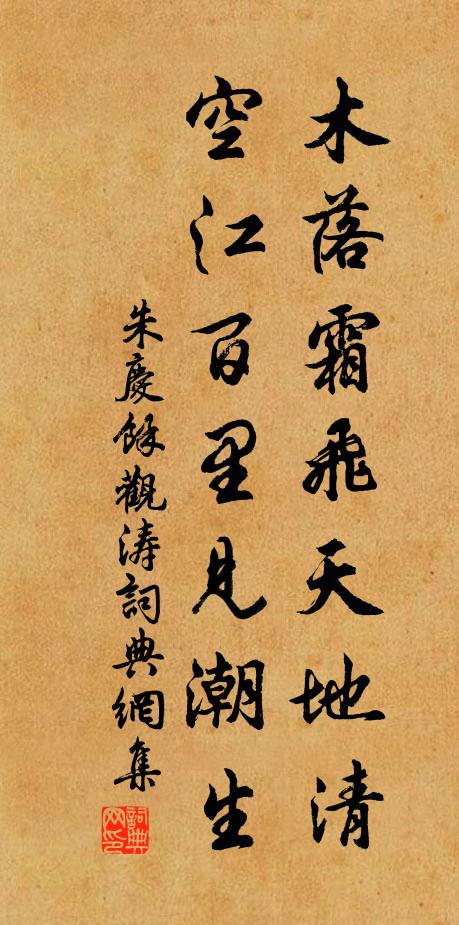 木落霜飛天地清
空江百里見潮生
朱慶餘觀濤詞典網集
詞典网印